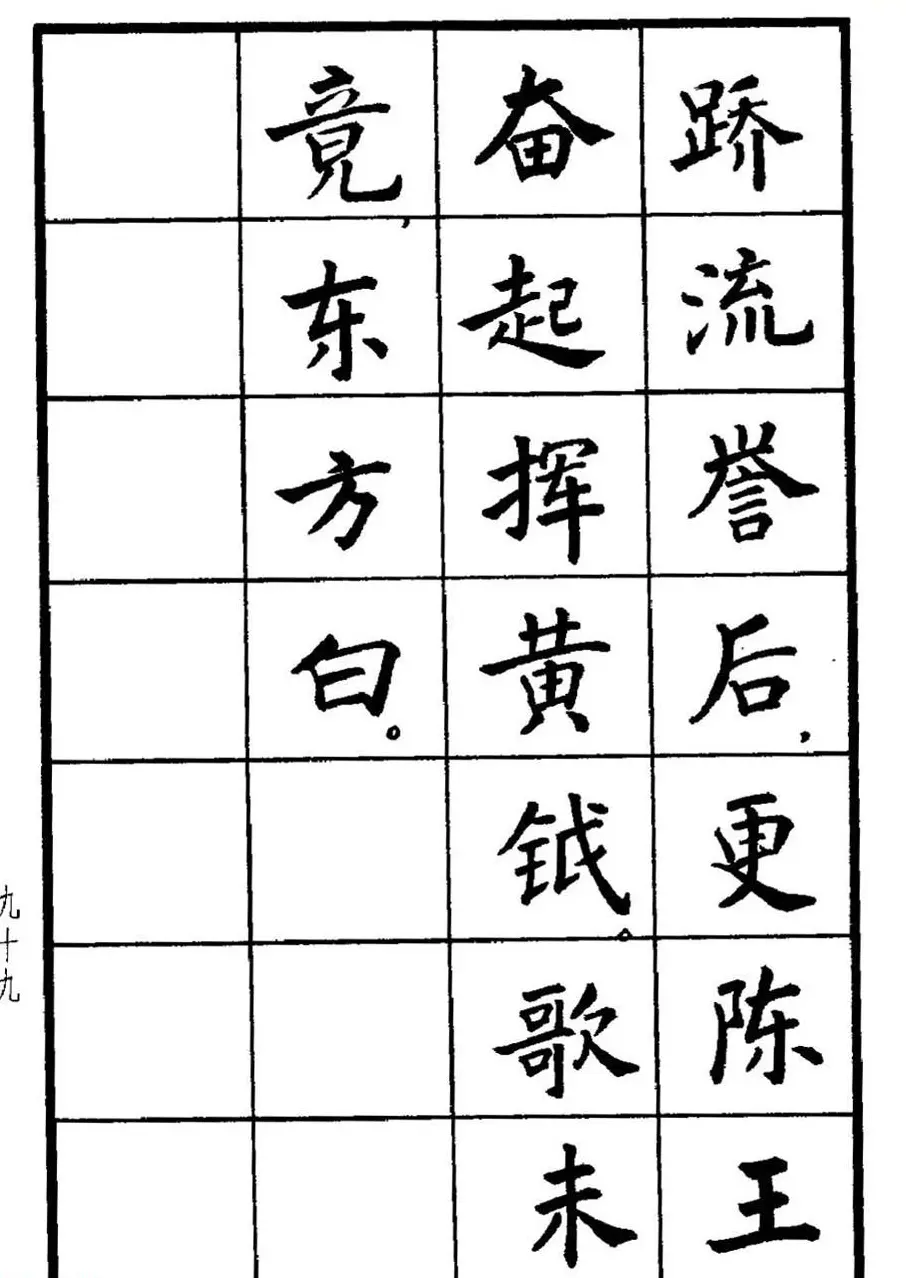 跻流誉后，更陈王
奋起挥黄钺。歌未
竟，东方白。
九十九